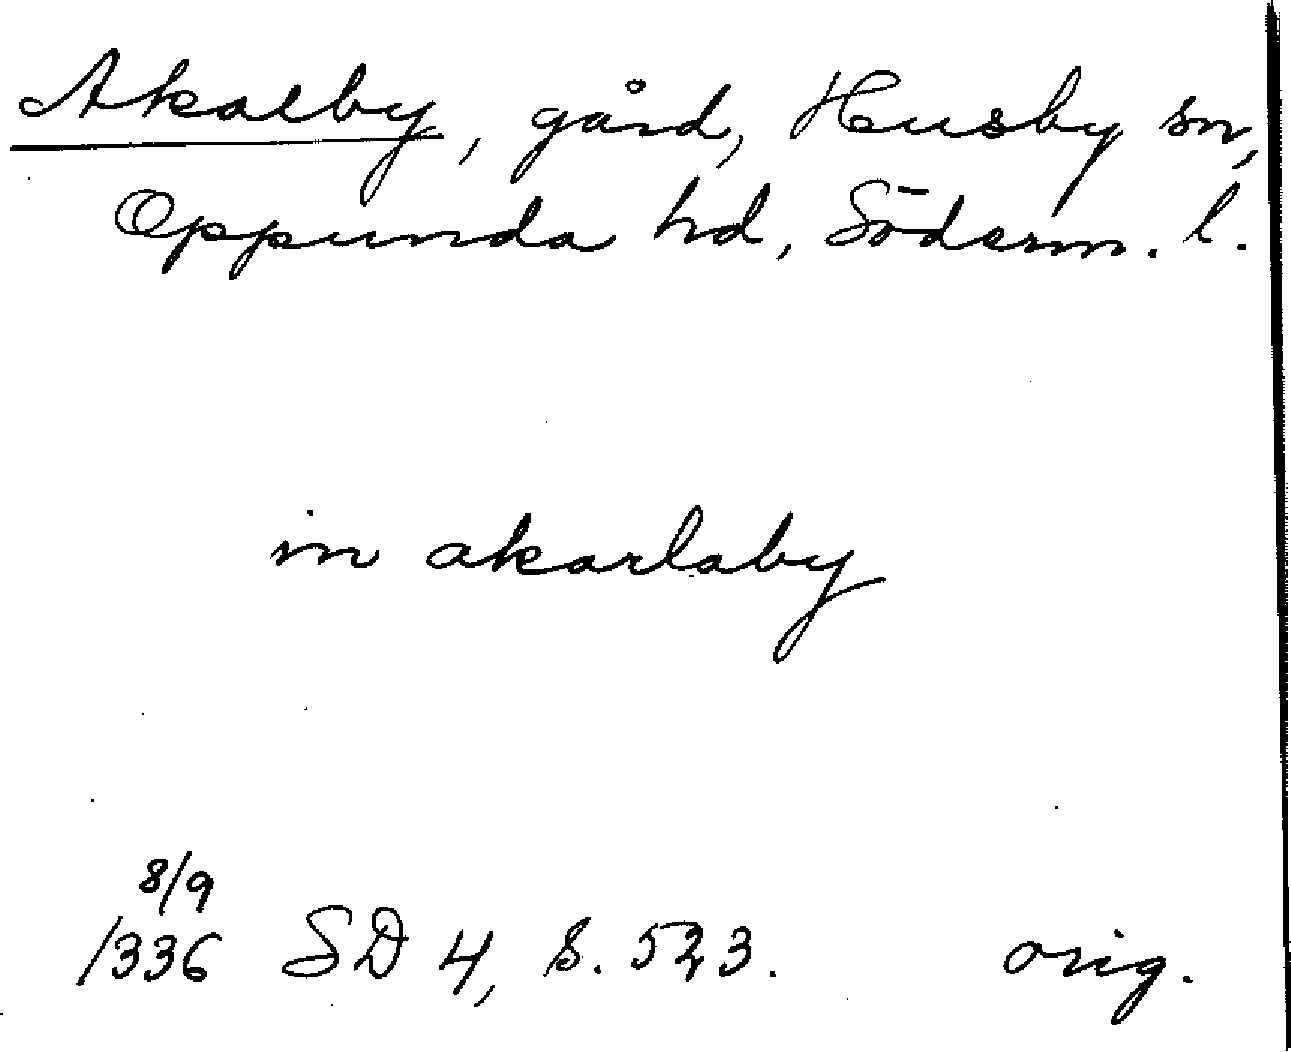 Akalby, gård, Husby sn,
Oppunda hd, Söderm. l.
in akarlaby
8/9
1336 SD 4, s. 523. orig.